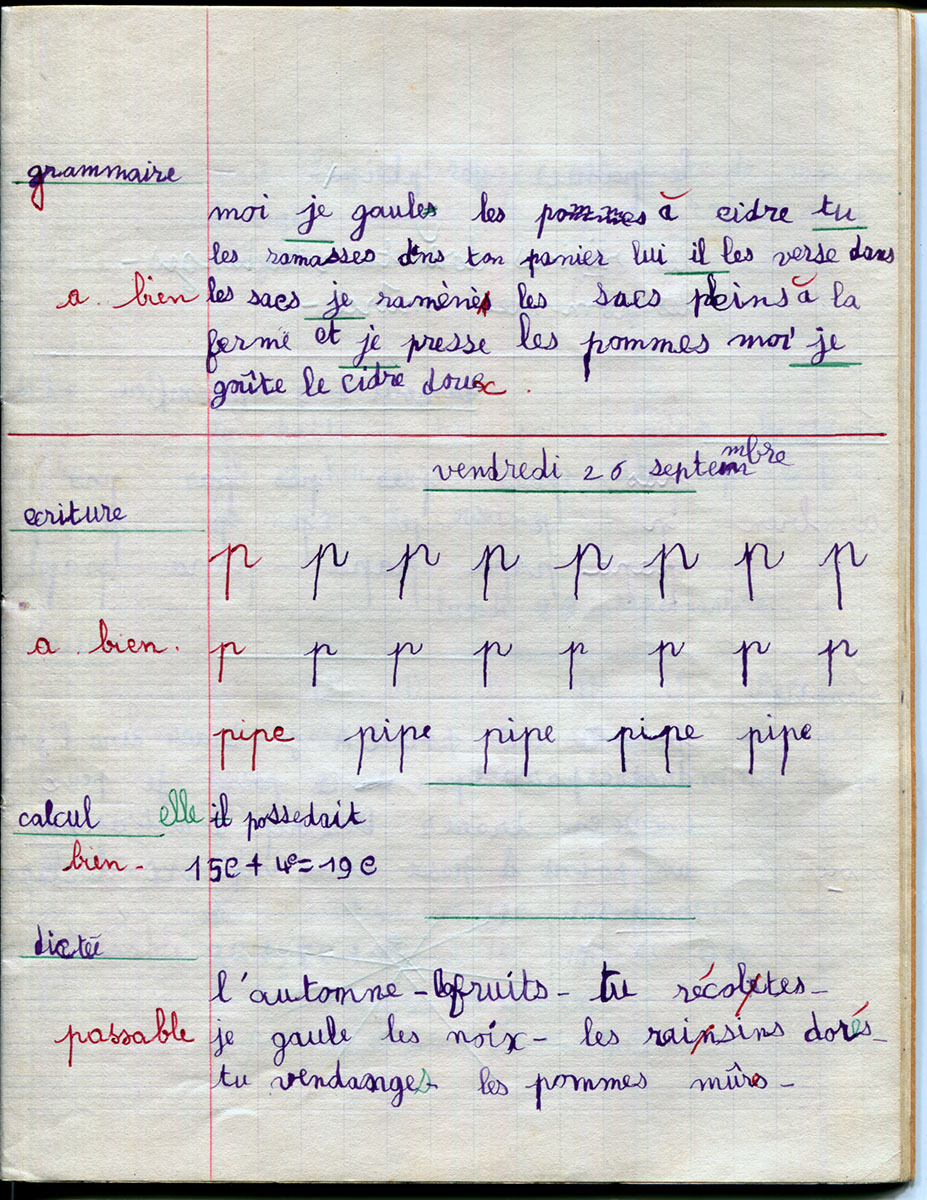 grammaire
moi je gaules les pommes à cidre tu
les ramasses dans ton panier lui il les verse dans
a bien les sacs je ramènes les sacs pleins à la
ferme et je presse les pommes moi je
goûte le cidre doux.
vendredi 26 septembre
ecriture
p p p p p p p p
a bien. p p p p p p p p
pipe pipe pipe pipe pipe
calcul elle il possedait
bien - 15c + 4c = 19c
dictée
l'automne - les fruits - tu récoltes -
passable je gaule les noix - les rainsins dorés -
tu vendanges les pommes mûres -